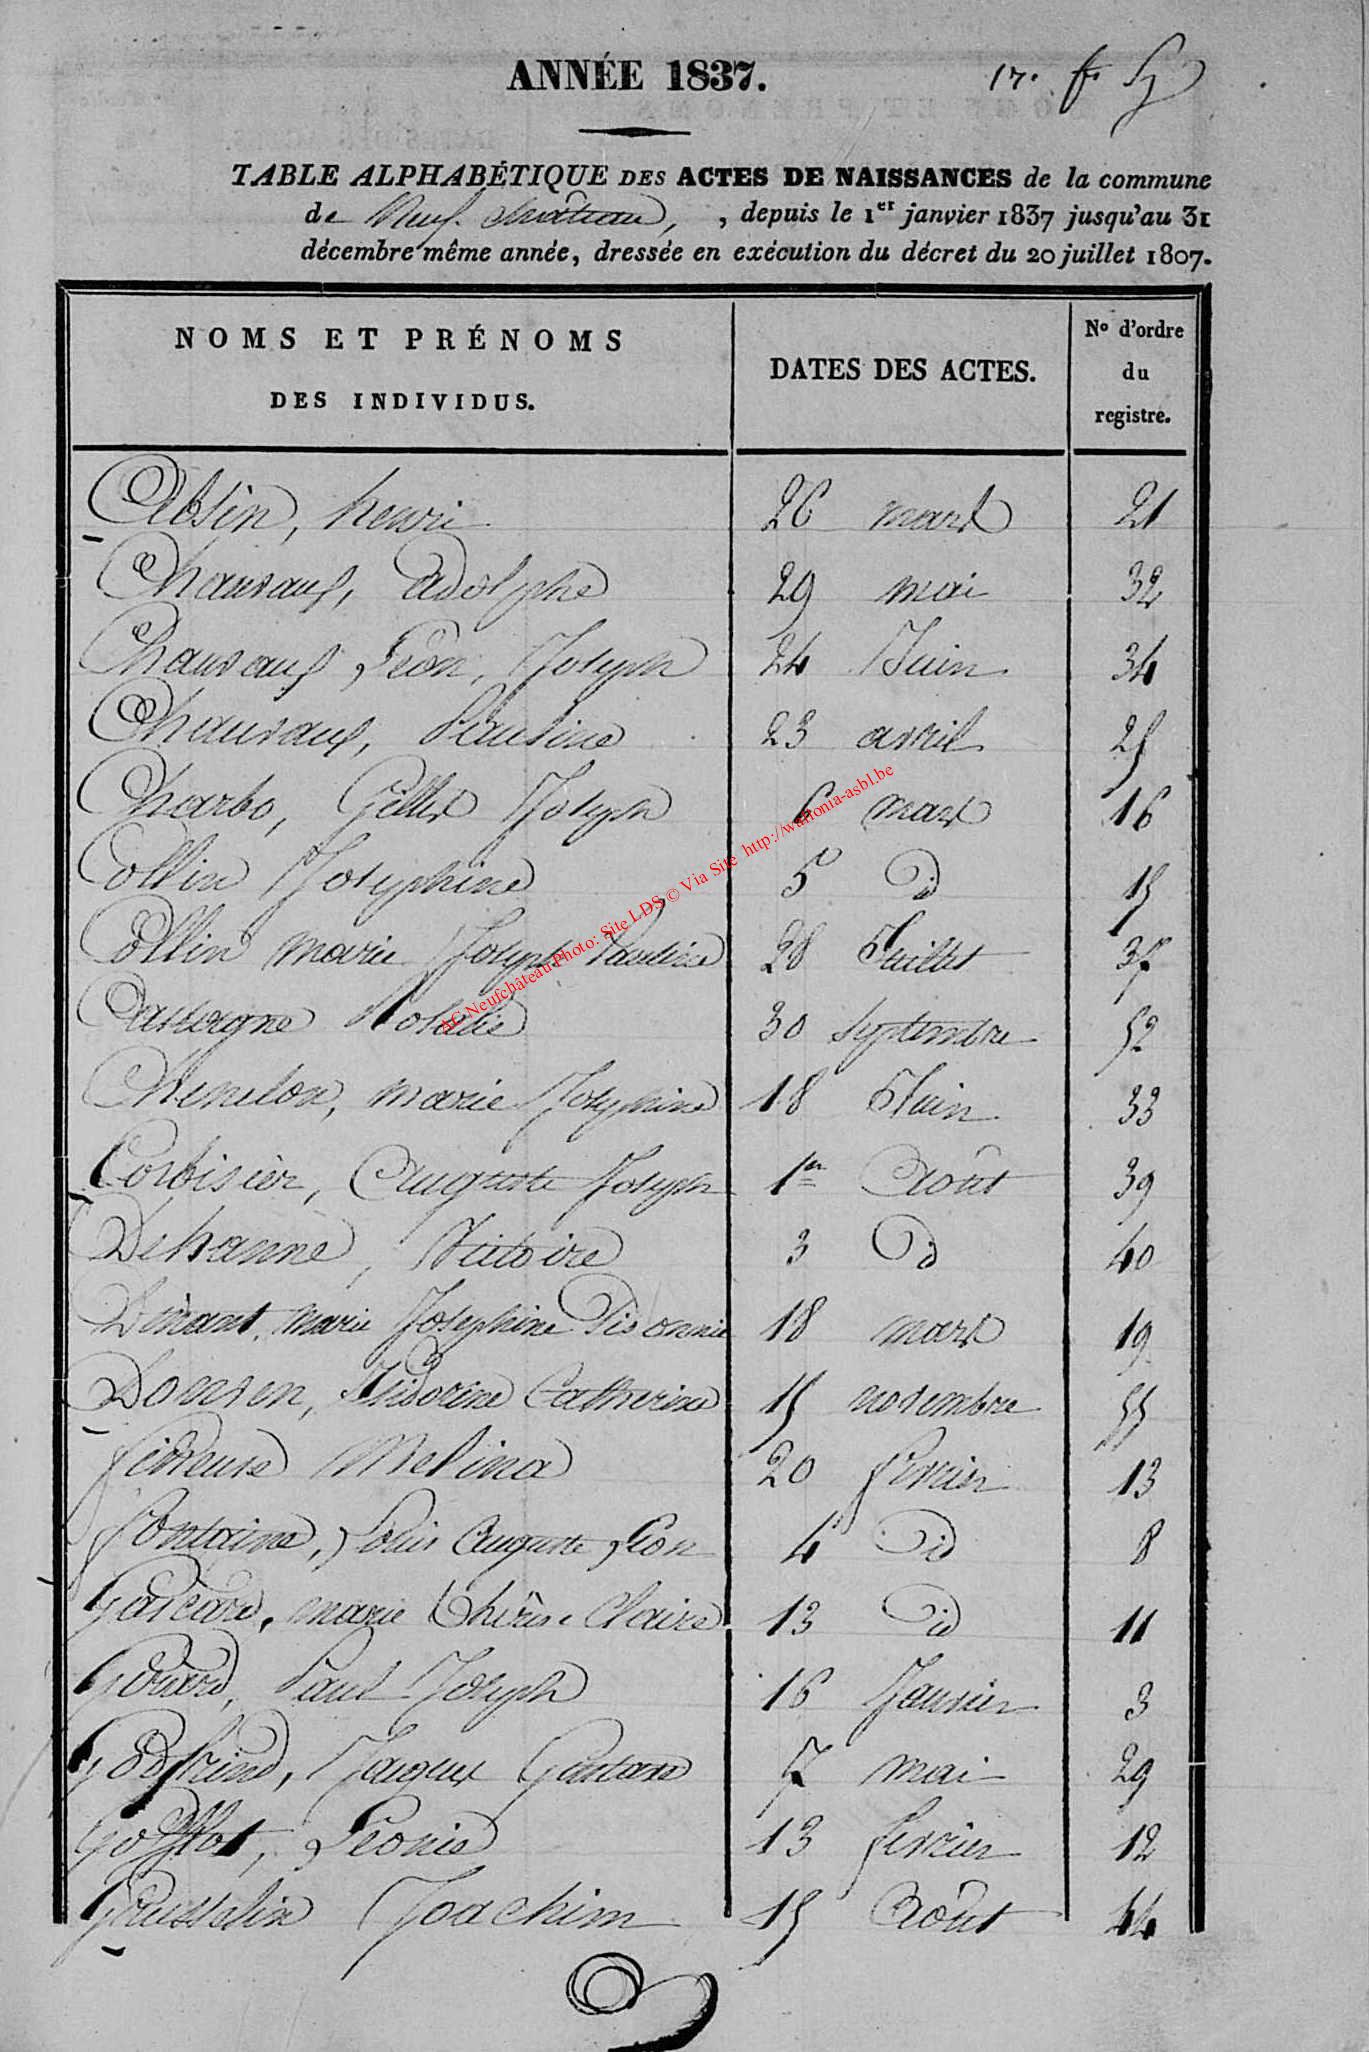 ANNÉE 1837.
17.
TABLE ALPHABÉTIQUE DES ACTES DE NAISSANCES de la commune
de Neuf-château, , depuis le 1er janvier 1837 jusqu'au 31
décembre même année, dressée en exécution du décret du 20 juillet 1807.
NOMS ET PRÉNOMS
DES INDIVIDUS.
DATES DES ACTES.
No d'ordre
du
registre.
Absin, henri 26 mars 21
Chauvaux, Adolphe 29 mai 32
Chauvaux Léon, Joseph 24 Juin 34
Chauvaux, Pauline 23 avril 25
Charbo, Gilles Joseph 6 mars 16
Collin Josephine 5 id 15
Collin marie Joseph Pauline 28 Juillet 37
Rosalie 30 septembre 52
Chenelon, marie Josephine 18 Juin 33
Corbisier, Auguste Joseph 1er Août 39
Dehanne, Victoire 3 id 40
Dinant, marie Josephine 18 mars 19
Catherine 15 novembre 55
Melina 20 fevrier 13
fontaine, Louis Auguste Léon 4 id 8
marie Thérèse Claire 13 id 11
Gérard, Paul Joseph 16 Janvier 3
Godfrind, Jaques 7 mai 29
Gofflot, Léonie 13 fevrier 12
Gousselin Joachim 15 Août 44
AC Neufchâteau Photo: Site LDS © Via Site http://wallonia-asbl.be